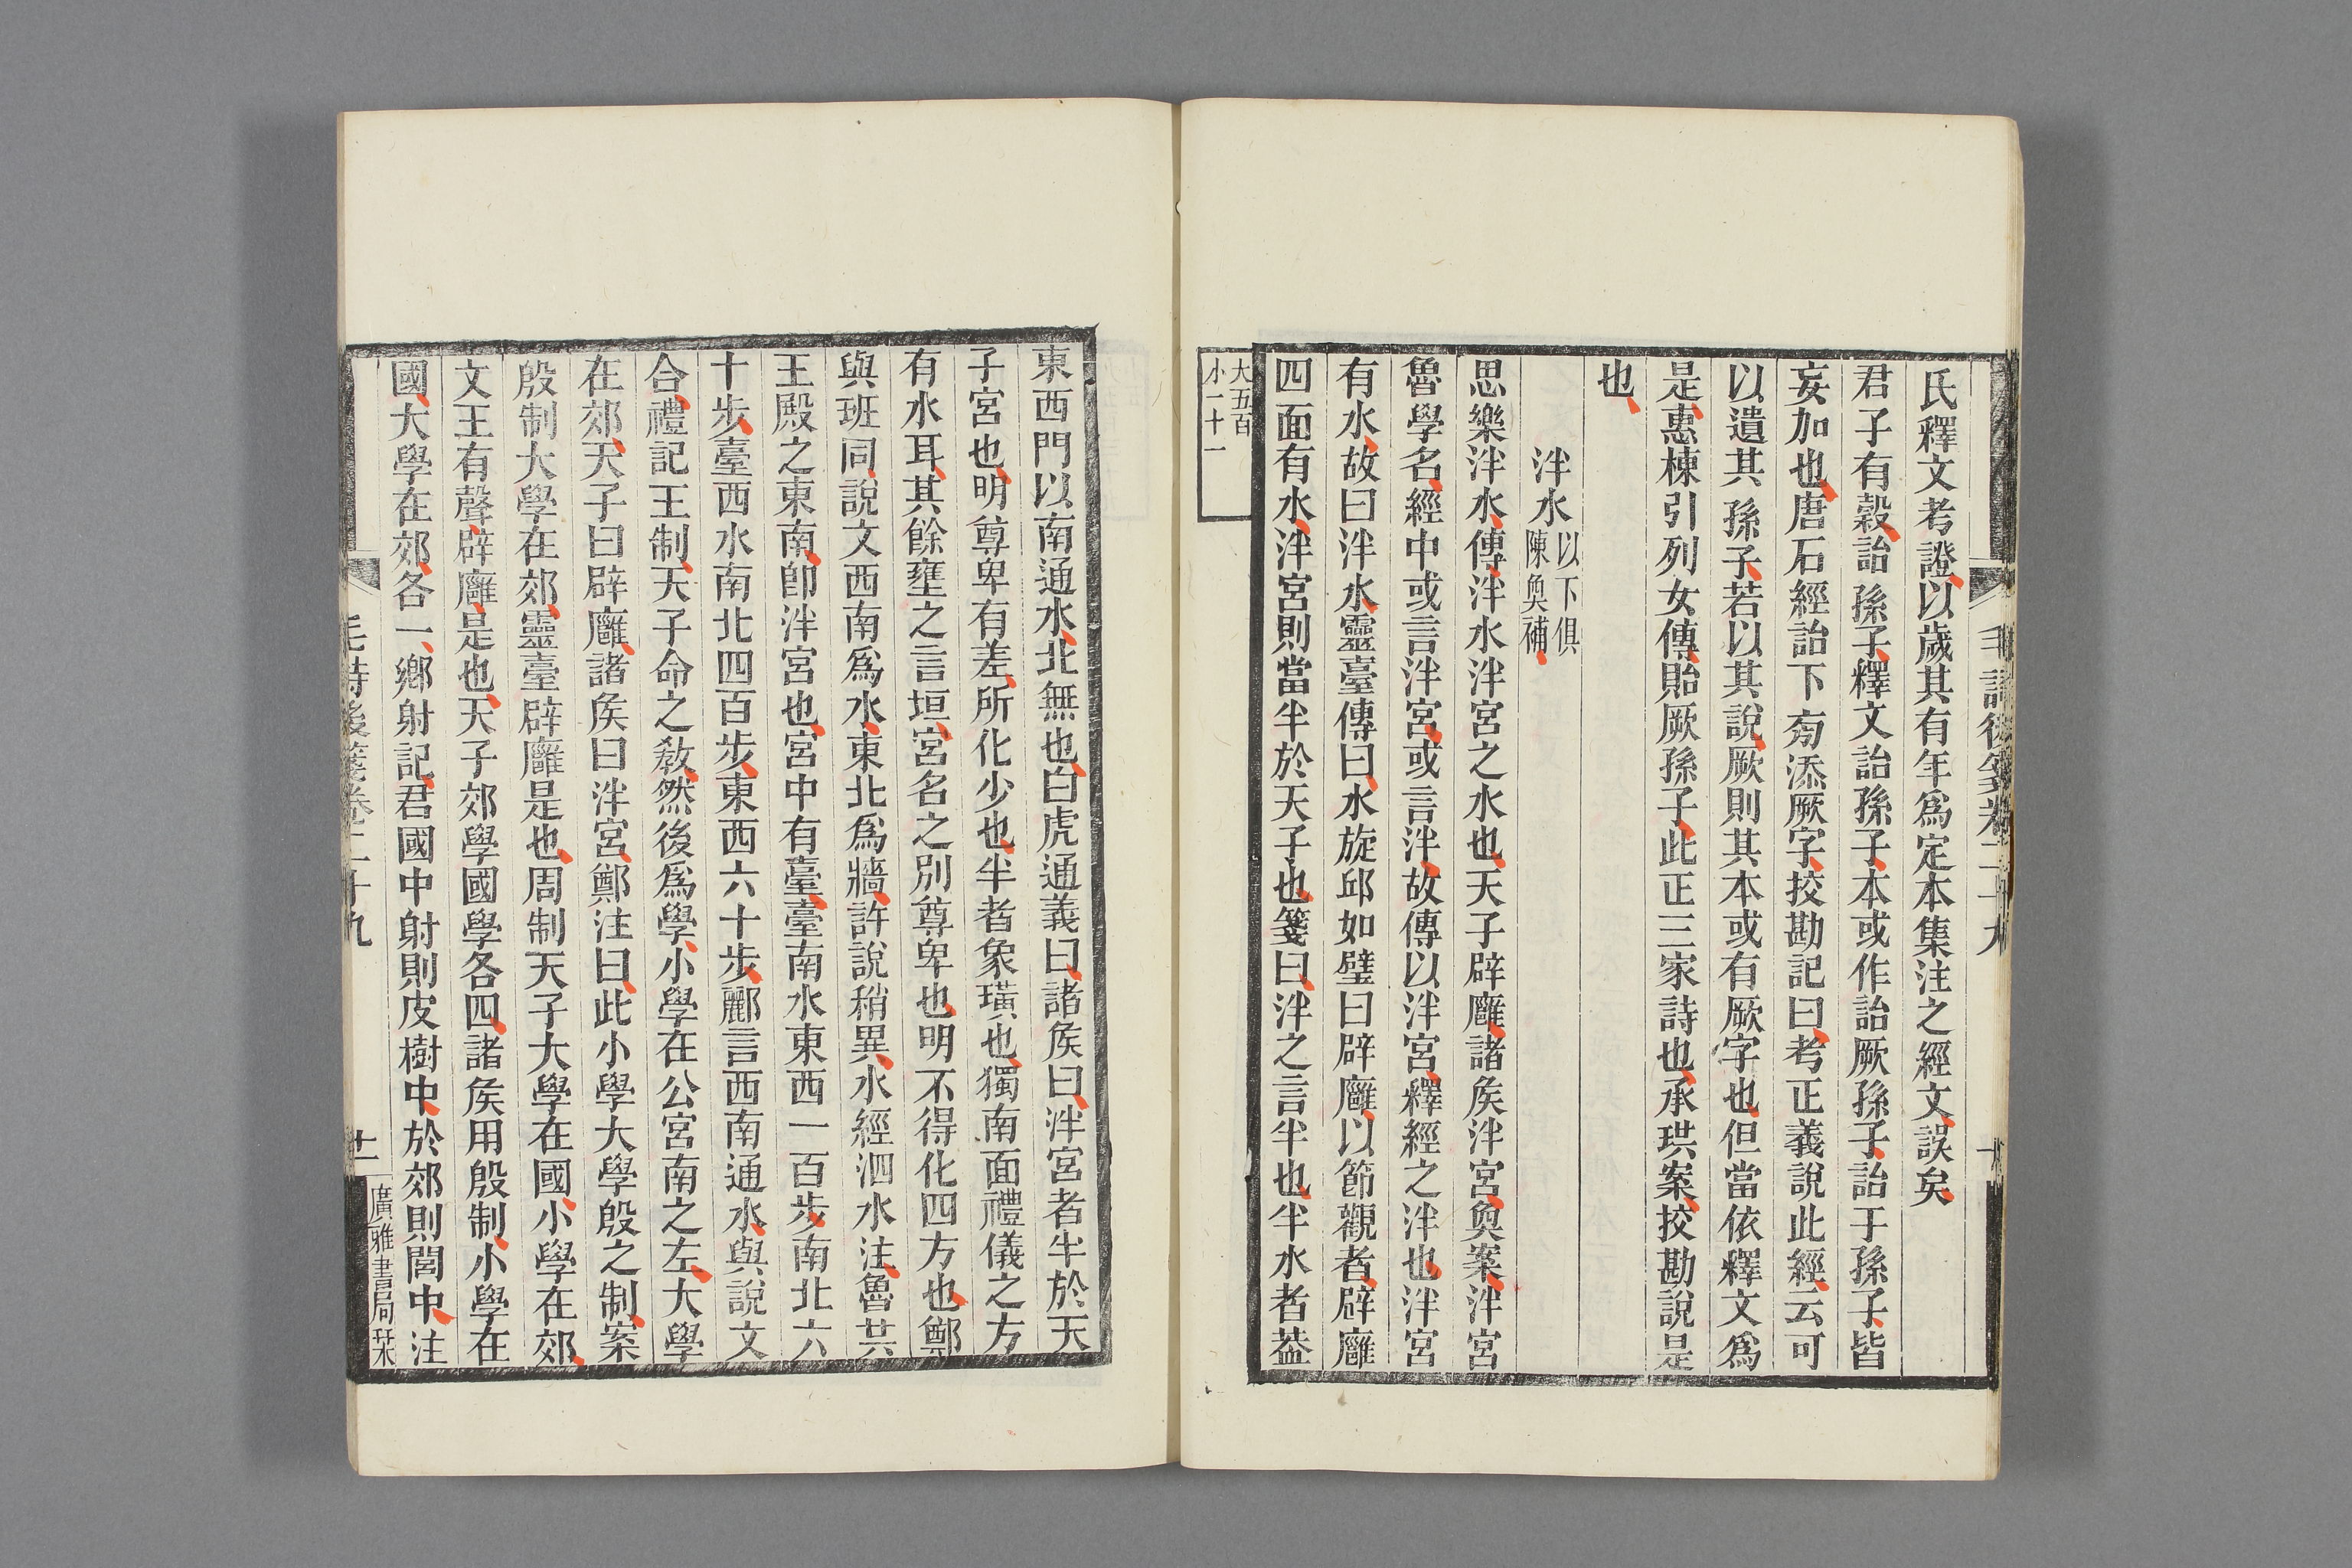 毛詩後箋卷二十九
氏釋文考證以歲其有年爲定本集注之經文誤矣
君子有穀詒孫子釋文詒孫子本或作詒厥孫子詒于孫子皆
妄加也唐石經詒下㫄添厥字挍勘記曰考正義說此經云可
以遺其孫子若以其說厥則其本或有厥字也但當依釋文爲
是惠棟引列女傳貽厥孫子此正三家詩也承珙案挍勘說是
也
泮水以下俱陳奐補
思樂泮水傳泮水泮宮之水也天子辟廱諸矦泮宮奐案泮宮
魯學名經中或言泮宮或言泮故傳以泮宮釋經之泮也泮宮
有水故曰泮水靈臺傳曰水旋邱如璧曰辟廱以節觀者辟廱
四面有水泮宮則當半於天子也箋曰泮之言半也半水者葢
大五百
小二十一
東西門以南通水北無也白虎通義曰諸矦曰泮宮者半於天
子宮也明尊卑有差所化少也半者象璜也獨南面禮儀之方
有水耳其餘壅之言垣宮名之別尊卑也明不得化四方也鄭
與班同說文西南爲水東北爲牆許說稍異水經泗水注魯共
王殿之東南卽泮宮也宮中有臺臺南水東西一百步南北六
十步臺西水南北四百步東西六十步酈言西南通水與說文
合禮記王制天子命之敎然後爲學小學在公宮南之左大學
在郊天子曰辟廱諸矦曰泮宮鄭注曰此小學大學殷之制案
殷制大學在郊靈臺辟廱是也周制天子大學在國小學在郊
文王有聲辟廱是也天子郊學國學各四諸矦用殷制小學在
國大學在郊各一鄉射記君國中射則皮樹中於郊則閭中注
毛詩後箋卷二十九
十一
廣雅書局栞